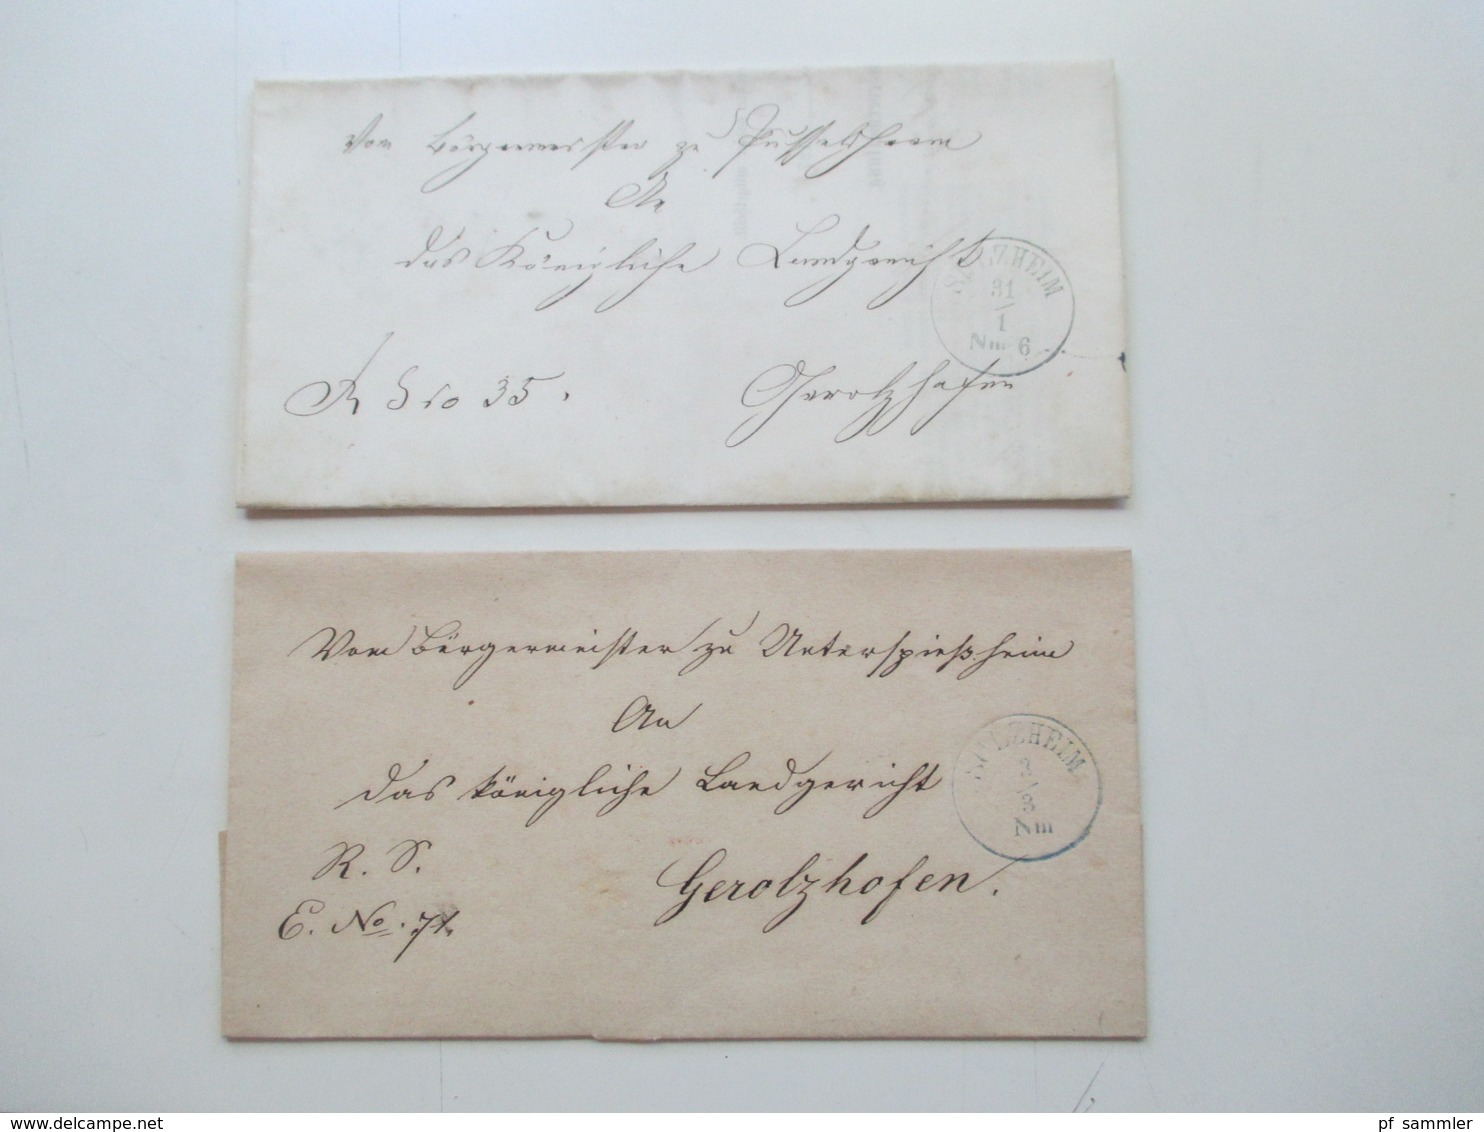 Vom Bürgermeister zu Püsselsheim
An
das Königliche Landgericht
SULZHEIM
31
1
Nm 6
R S No 35.
Gerolzhofen
Vom Bürgermeister zu Unterspießheim
An
das königliche Landgericht
SULZHEIM
3
Nm
R. S.
Gerolzhofen.
E. No. 71.
delcampe.net
pf_sammler